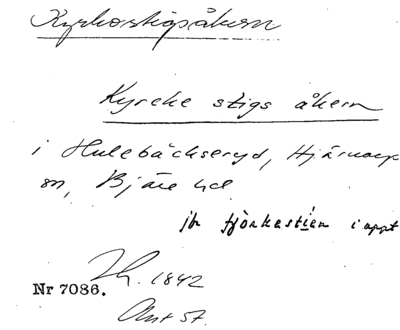 Kyrkostigsåkern
Kyrcke stigs åkern
i Hulebäckseryd, Hjärnarp
sn, Bjäre hd
jfr i uppt
Nr 7086. 1842